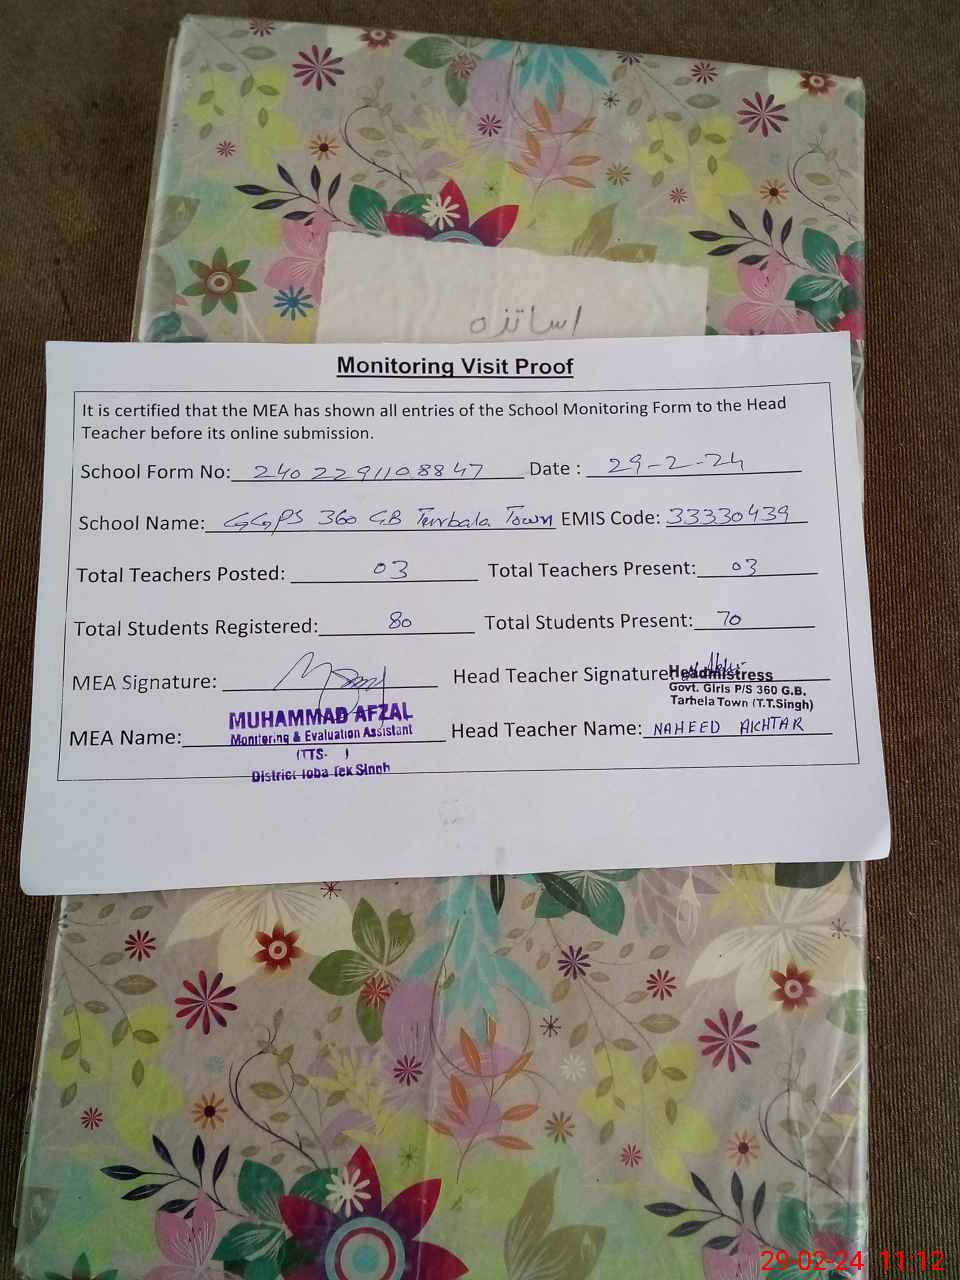 اساتذہ
Monitoring Visit Proof
It is certified that the MEA has shown all entries of the School Monitoring Form to the Head
Teacher before its online submission.
School Form No: 2402291108847 Date : 29-2-24
School Name: GGPS 360 GB Tarbala Town EMIS Code: 33330439
Total Teachers Posted: 03 Total Teachers Present: 03
Total Students Registered: 80 Total Students Present: 70
MEA Signature: Head Teacher Signature
Headmistress
Govt. Girls P/S 360 G.B.
Tarhela Town (T.T.Singh)
MUHAMMAD AFZAL
Monitoring & Evaluation Assistant
(TTS- )
District Toba Tek Singh
MEA Name: Head Teacher Name: NAHEED AKHTAR
29-02-24 11:12